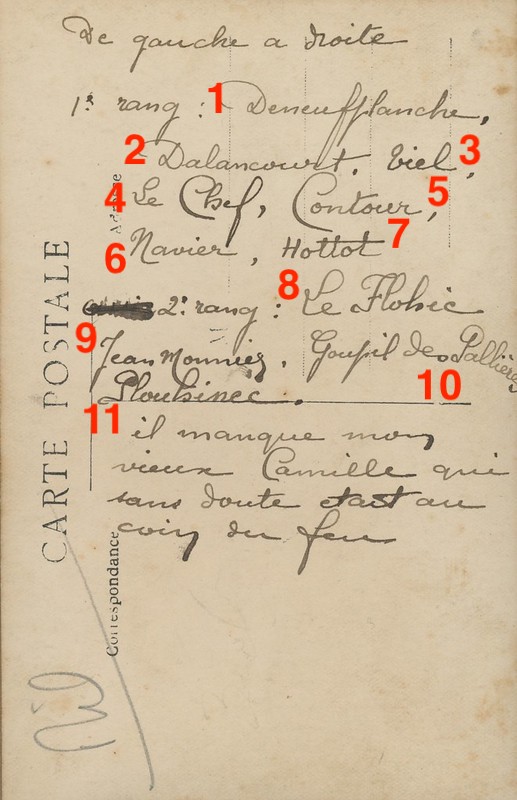 De gauche a droite
1r rang : 1 Deneufflanche,
2 Dalancourt, Viel, 3
4 Le Chef, Contour, 5
6 Navier, Hottot 7
2e rang : 8 Le Flohic
9 Jean Monnier, Goupil des Pallières 10
11 Plouhinec.
il manque mon
vieux Camille qui
sans doute était au
coin du feu
CARTE POSTALE
Correspondance